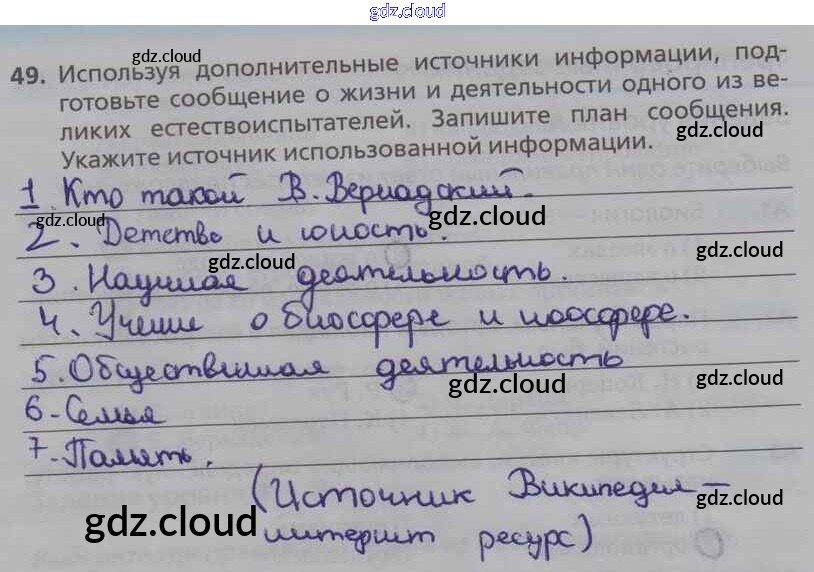 gdz.cloud
gdz.cloud gdz.cloud
49. Используя дополнительные источники информации, под-
готовьте сообщение о жизни и деятельности одного из ве-
ликих естествоиспытателей. Запишите план сообщения.
gdz.cloud gdz.cloud
Укажите источник использованной информации.
1. Кто такой В. Вернадский.
gdz.cloud gdz.cloud
2. Детство и юность.
gdz.cloud gdz.cloud
3. Научная деятельность.
4. Учение о биосфере и ноосфере.
5. Общественная деятельность
gdz.cloud gdz.cloud
6. Семья
7. Память.
(Источник Википедия –
gdz.cloud gdz.cloud
интернет ресурс)